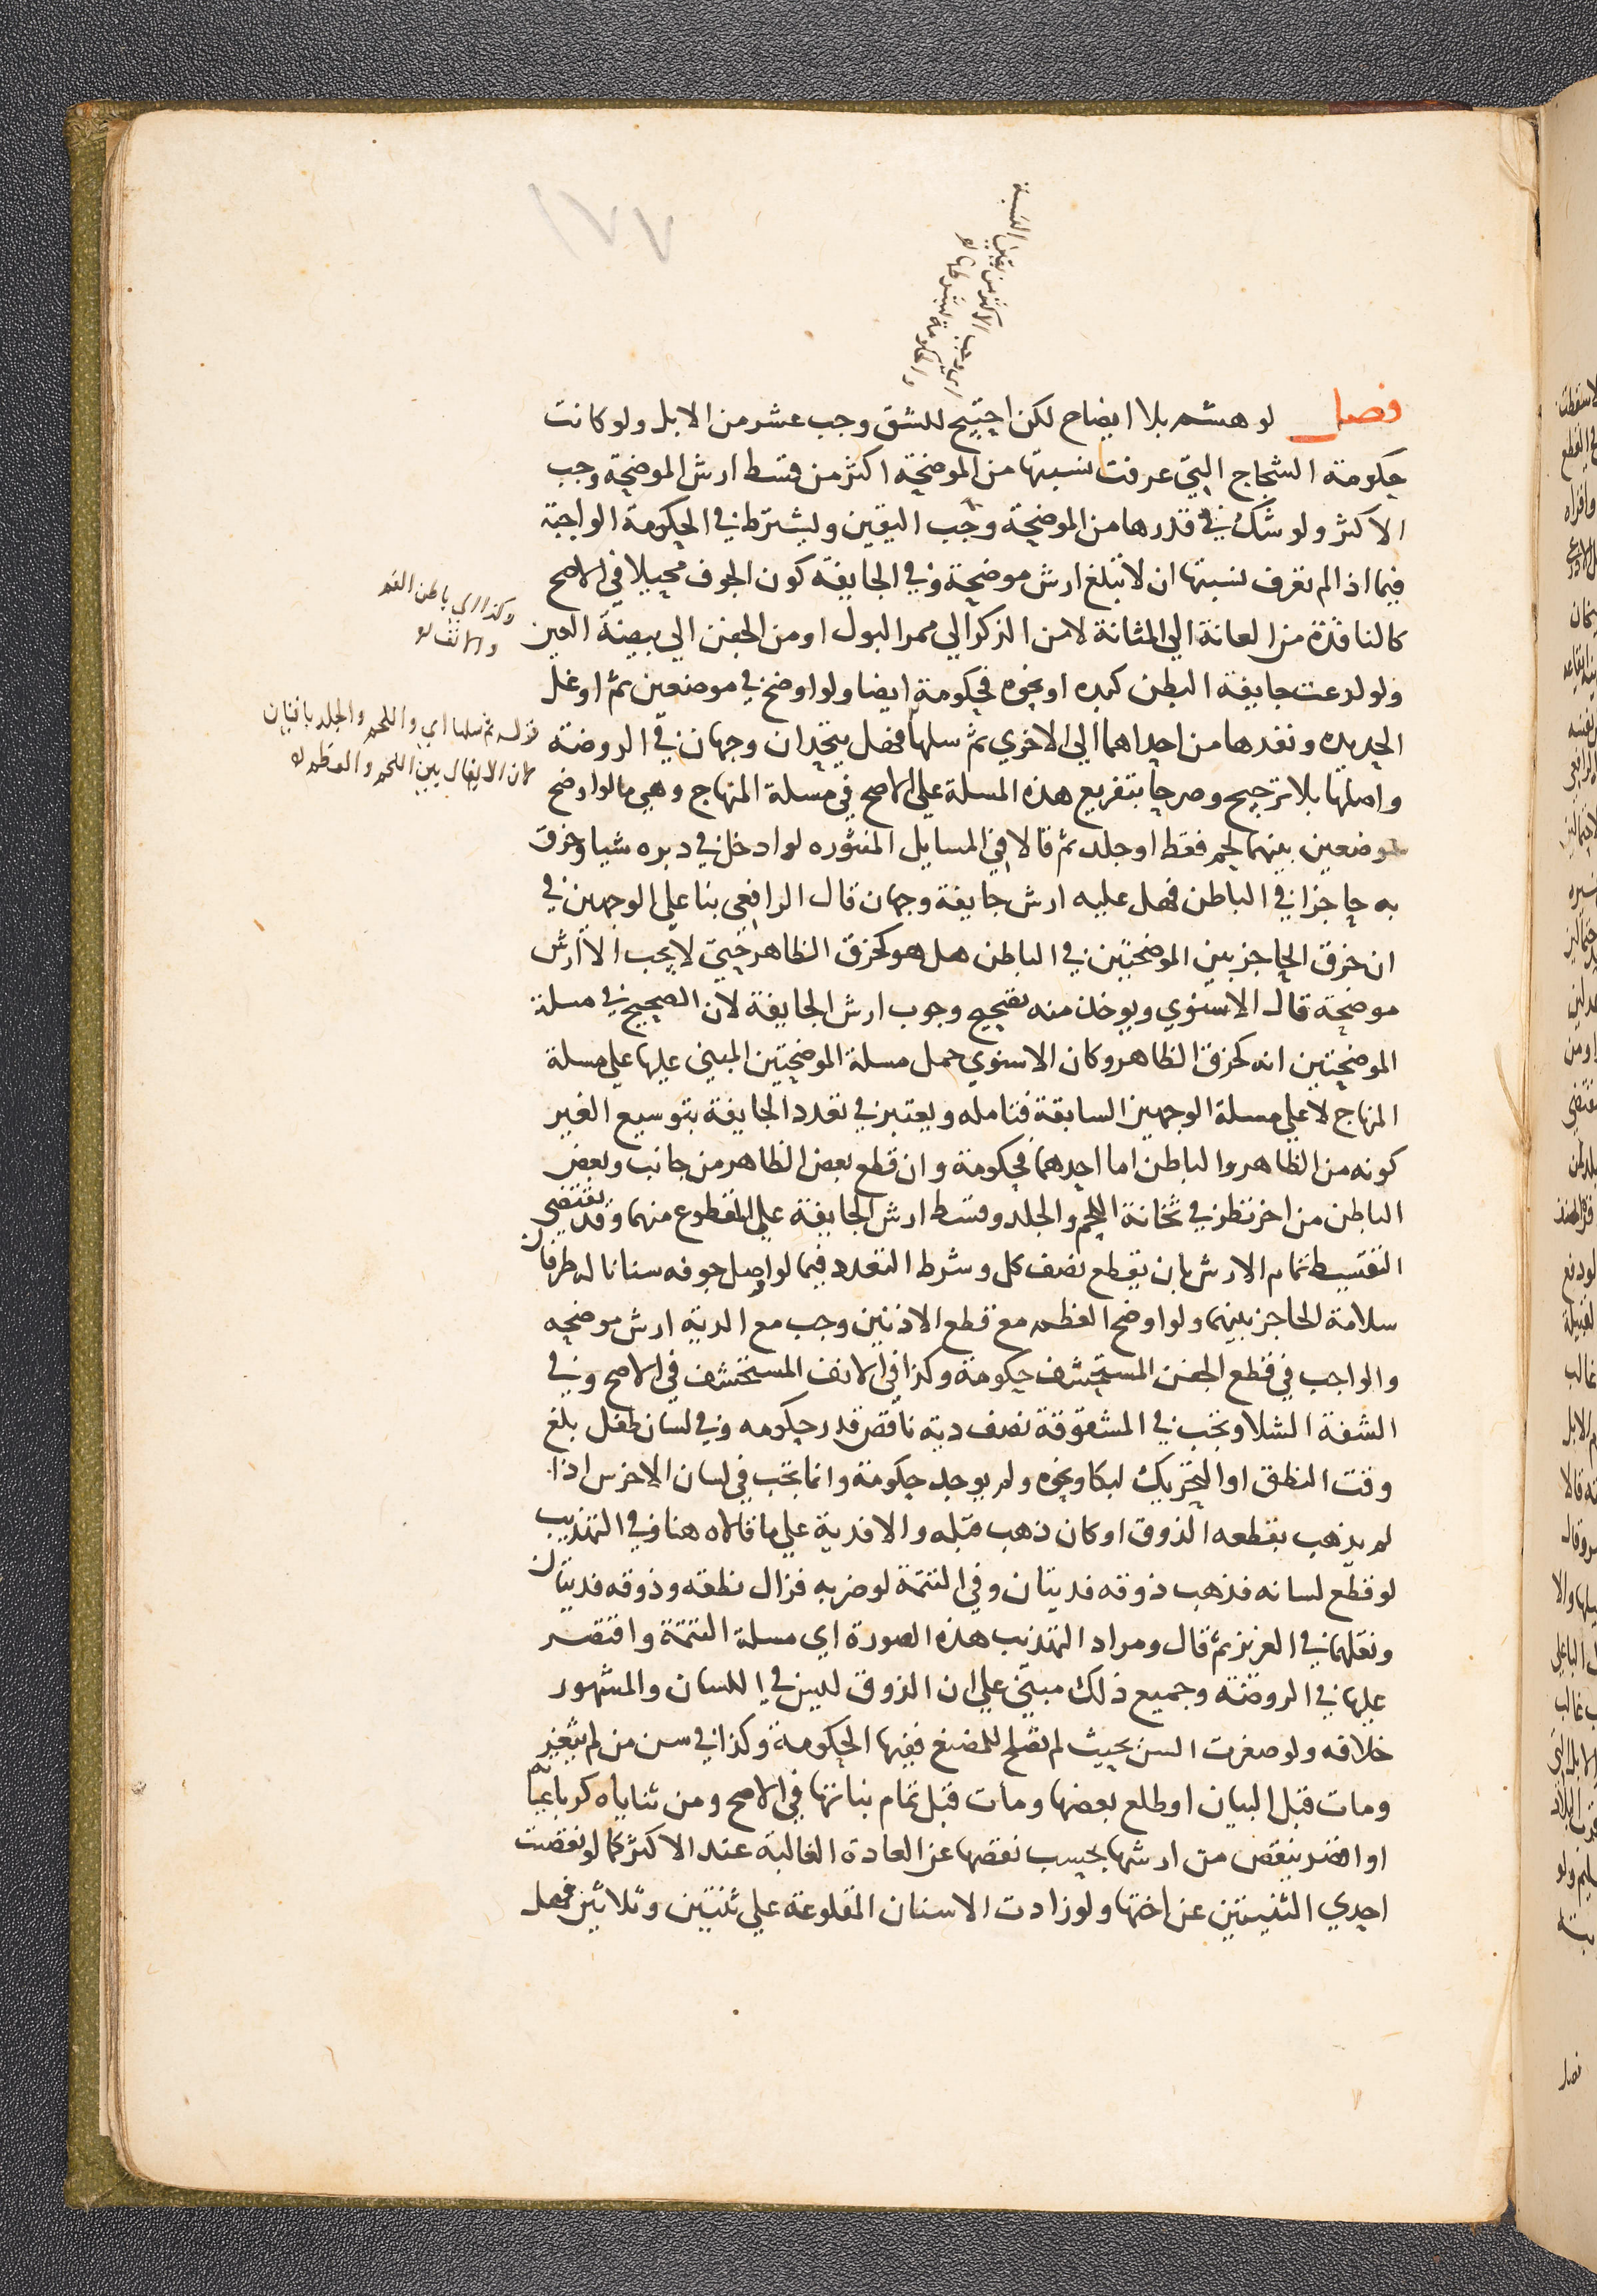 ١٧٧
اي وجب الاكثر من يقين النسبة
والحكومة بشرطها لا
فصل لو هشم بلا ايضاح لكن احتيج للشق وجب عشر من الابل ولو كانت
حكومة الشجاج التي عرفت نسبتها من الموضحة اكثر من قسط ارش الموضحة وجب
الاكثر ولو شك في قدرها من الموضحة وجب اليقين ويشترط في الحكومة الواجبة
فيما اذا لم تعرف نسبتها ان لا تبلغ ارش موضحة وفي الجايفة كون الجوف محيلا في الاصح
كالنافذة من العانة الي المثانة لا من الذكر الي ممر البول او من الجفن الي بيضة العين
ولو لدعت جايفة البطن كبده او نحوه فحكومة ايضا ولو اوضح في موضعين ثم اوغل
الحديدة ونفدها من احداهما الي الاخري ثم سلها فهل يتحدان وجهان في الروضة
واصلها بلا ترجيح وصرحا بتفريع هذه المسلة علي الاصح في مسلة المنهاج وهي ما لو اوضح
موضعين بينهما لحم فقط او جلد ثم قالا في المسايل المنثوره لو ادخل في دبره شيا وخرق
به حاجزا في الباطن فهل عليه ارش جايفة وجهان قال الرافعي بنا علي الوجهين في
ان خرق الحاجز بين الموضحتين في الباطن هل هو كخرق الظاهر حتي لا يجب الا ارش
موضحة قال الاسنوي ويوخذ منه تصحيح وجوب ارش الجايفة لان الصحيح في مسلة
الموضحتين انه كخرق الظاهر وكان الاسنوي حمل مسلة الموضحتين المبني عليها علي مسلة
المنهاج لا علي مسلة الوجهين السابقة فتامله ويعتبر في تعدد الجايفة بتوسيع الغير
كونه من الظاهر والباطن اما احدهما فحكومة وان قطع بعض الظاهر من جانب وبعض
الباطن من اخر نظر في ثخانة اللحم والجلد وقسط ارش الجايفة علي المقطوع منهما وقد يقتضي
التقسيط تمام الارش بان يقطع نصف كل وشرط التعدد فيما لو اوصل جوفه سنانا له طرفان
سلامة الحاجز بينهما ولو اوضح العظم مع قطع الاذنين وجب مع الدية ارش موضحه
والواجب في قطع الجفن المستحشف حكومة وكذا في الانف المستحشف في الاصح وفي
الشفة الشلا وتجب في المشقوقة نصف دية ناقص قدر حكومه وفي لسان طفل بلغ
وقت النطق او التحريك لبكا ونحوه ولم يوجد حكومة وانما تجب في لسان الاخرس اذا
لم يذهب بقطعه الذوق او كان ذهب قبله والا فدية علي ما قالاه هنا وفي التهذيب
لو قطع لسانه فذهب ذوقه فديتان وفي التتمة لو ضربه فزال نطقه وذوقه فديتان
ونقلهما في العزيز ثم قال ومراد التهذيب هذه الصورة اي مسلة التتمة واقتصر
عليها في الروضة وجميع ذلك مبني علي ان الذوق ليس في اللسان والمشهور
خلافه ولو صغرت السن بحيث لم تصلح للمضغ ففيها الحكومة وكذا في سن من لم يثغر
ومات قبل البيان او طلع بعضها ومات قبل تمام نباتها في الاصح ومن ثناياه كرباعياته
او اقصر ينقص من ارشها بحسب نقصها عن العادة الغالبة عند الاكثر كما لو نقصت
احدي الثنيتين عن اختها ولو زادت الاسنان المقلوعة علي ثنتين وثلاثين فهل
وكذا اي باطن الفم
والانف لا
قوله ثم سلها اي واللحم والجلد باقيان
لان الايغال بين اللحم والعظم لا